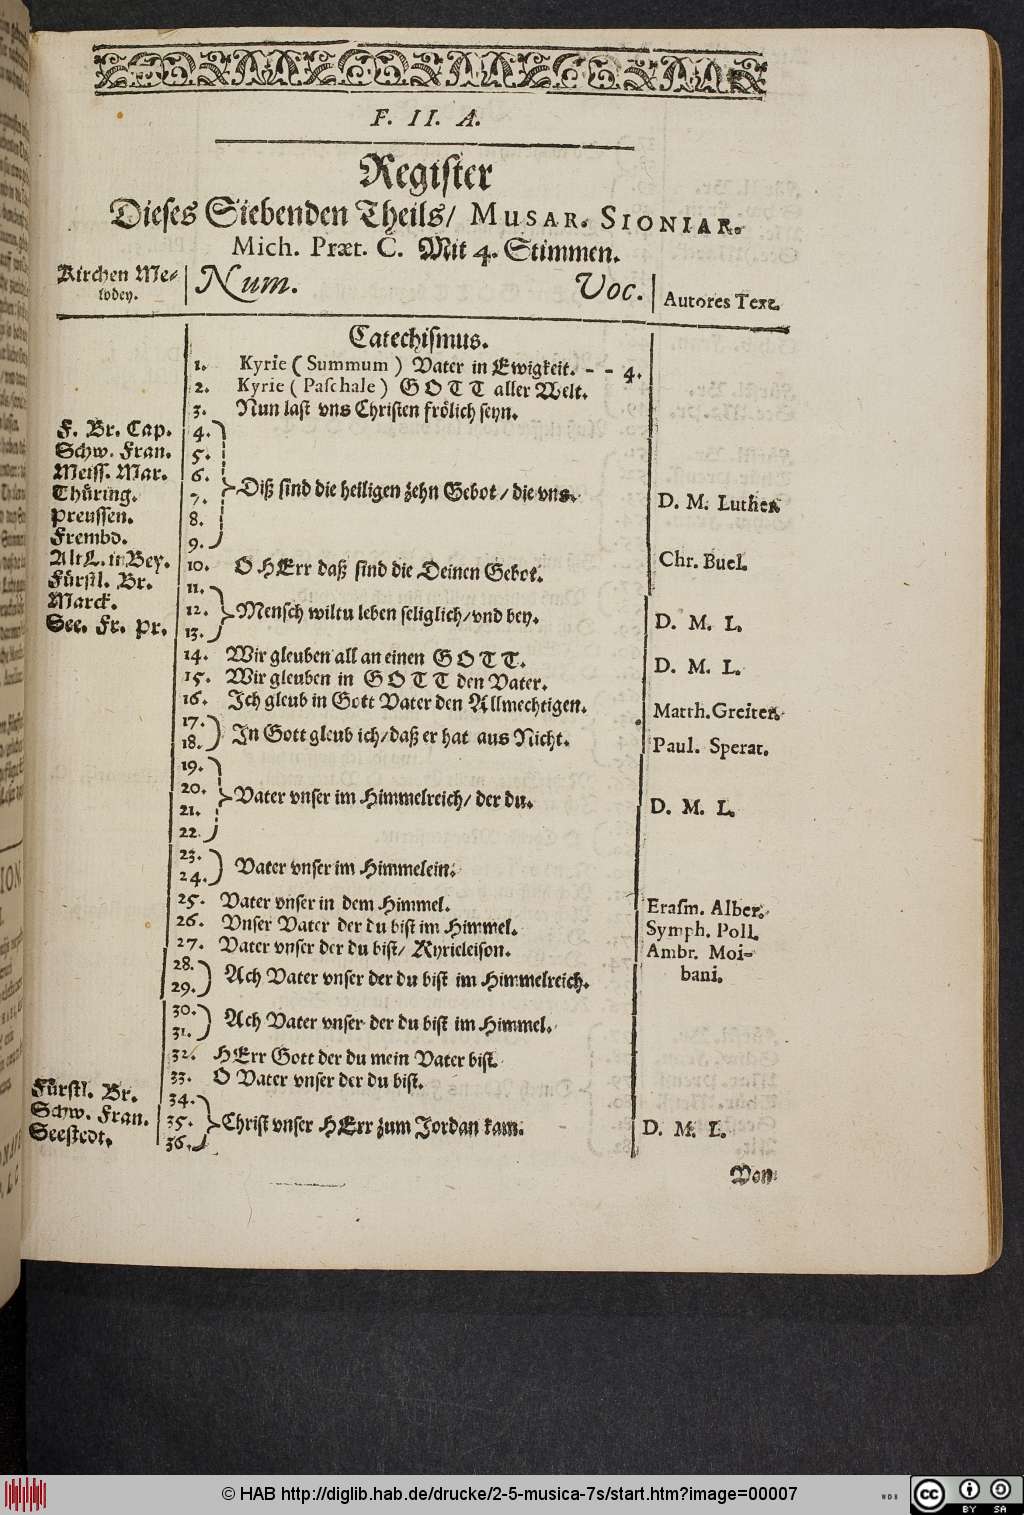 F. II. A.
Register
Dieses Siebenden Theils/ MUSAR. SIONIAR.
Mich. Præt. C. Mit 4. Stimmen.
Kirchen Me-
lodey.
Num. Voc. Autores Text.
Catechiſmus.
1. Kyrie ( Summum ) Vater in Ewigkeit. - - 4.
2. Kyrie ( Paſchale ) GOTT aller Welt.
3. Nun laſt vns Chriſten frölich ſeyn.
F. Br. Cap. 4.
Schw. Fran. 5.
Meiſſ. Mar. 6.
Thüring. 7. Diß ſind die heiligen zehn Gebot / die vns. D. M. Luther.
Preuſſen. 8.
Frembd. 9.
Alt L. in Bey. 10. O HErr daß ſind die Deinen Gebot. Chr. Buel.
Fürſtl. Br. 11.
Marck. 12. Menſch wiltu leben ſeliglich/ vnd bey. D. M. L.
See. Fr. Pr. 13.
14. Wir gleuben all an einen GOTT. D. M. L.
15. Wir gleuben in GOTT den Vater.
16. Ich gleub in Gott Vater den Allmechtigen. Matth. Greiter.
17.
18. In Gott gleub ich/ daß er hat aus Nicht. Paul. Sperat.
19.
20. Vater vnſer im Himmelreich/ der du. D. M. L.
21.
22.
23.
24. Vater vnſer im Himmelein.
25. Vater vnſer in dem Himmel. Eraſm. Alber.
26. Vnſer Vater der du biſt im Himmel. Symph. Poll.
27. Vater vnſer der du biſt/ Kyrieleiſon. Ambr. Moi-
bani.
28.
29. Ach Vater vnſer der du biſt im Himmelreich.
30.
31. Ach Vater vnſer der du biſt im Himmel.
32. HErr Gott der du mein Vater biſt.
33. O Vater vnſer der du biſt.
Fürſtl. Br. 34.
Schw. Fran. 35. Chriſt vnſer HErr zum Jordan kam. D. M. L.
Seeſtedt. 36.
Von
© HAB http://diglib.hab.de/drucke/2-5-musica-7s/start.htm?image=00007
WDB
CC BY SA